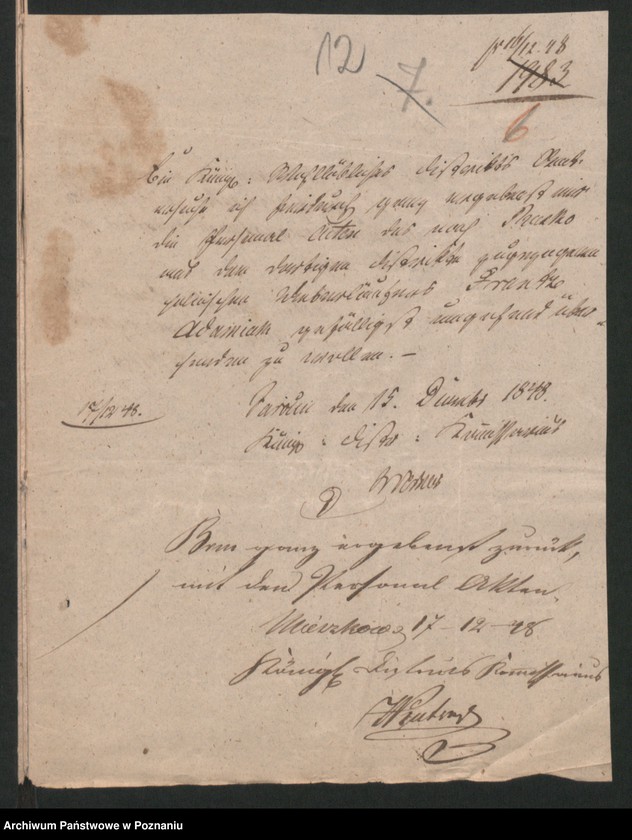 12
7.
pr 16/12. 48
1983
6
Ein Königl: Wohllöbliches Distrikts Amt
ersuche ich hierdurch ganz ergebenst mir
die Personal Acten des nach
aus dem dortigen Distrikte zugezogenen
Frantz
Adamiak gefälligst umgehend über-
senden zu wollen. —
17/12 48.
den 15. Decembr 1848.
Königl: Distr: Kommissarius
Brm ganz ergebenst zurück,
mit den Personal Akten.
Mieszkow 17-12-48
Königl. Distrikts Kommissarius
Archiwum Państwowe w Poznaniu